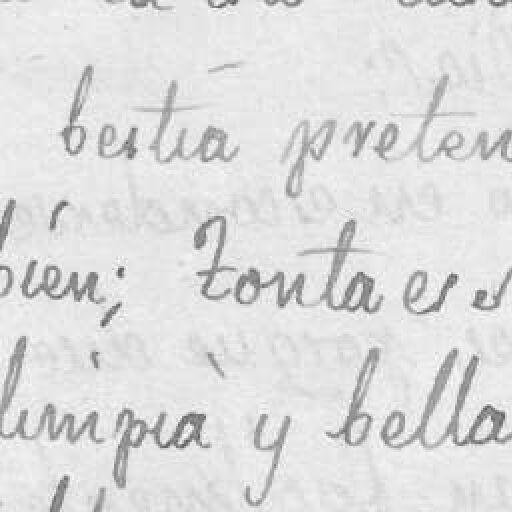 bestia preten
bién; tonta es
limpia y bella